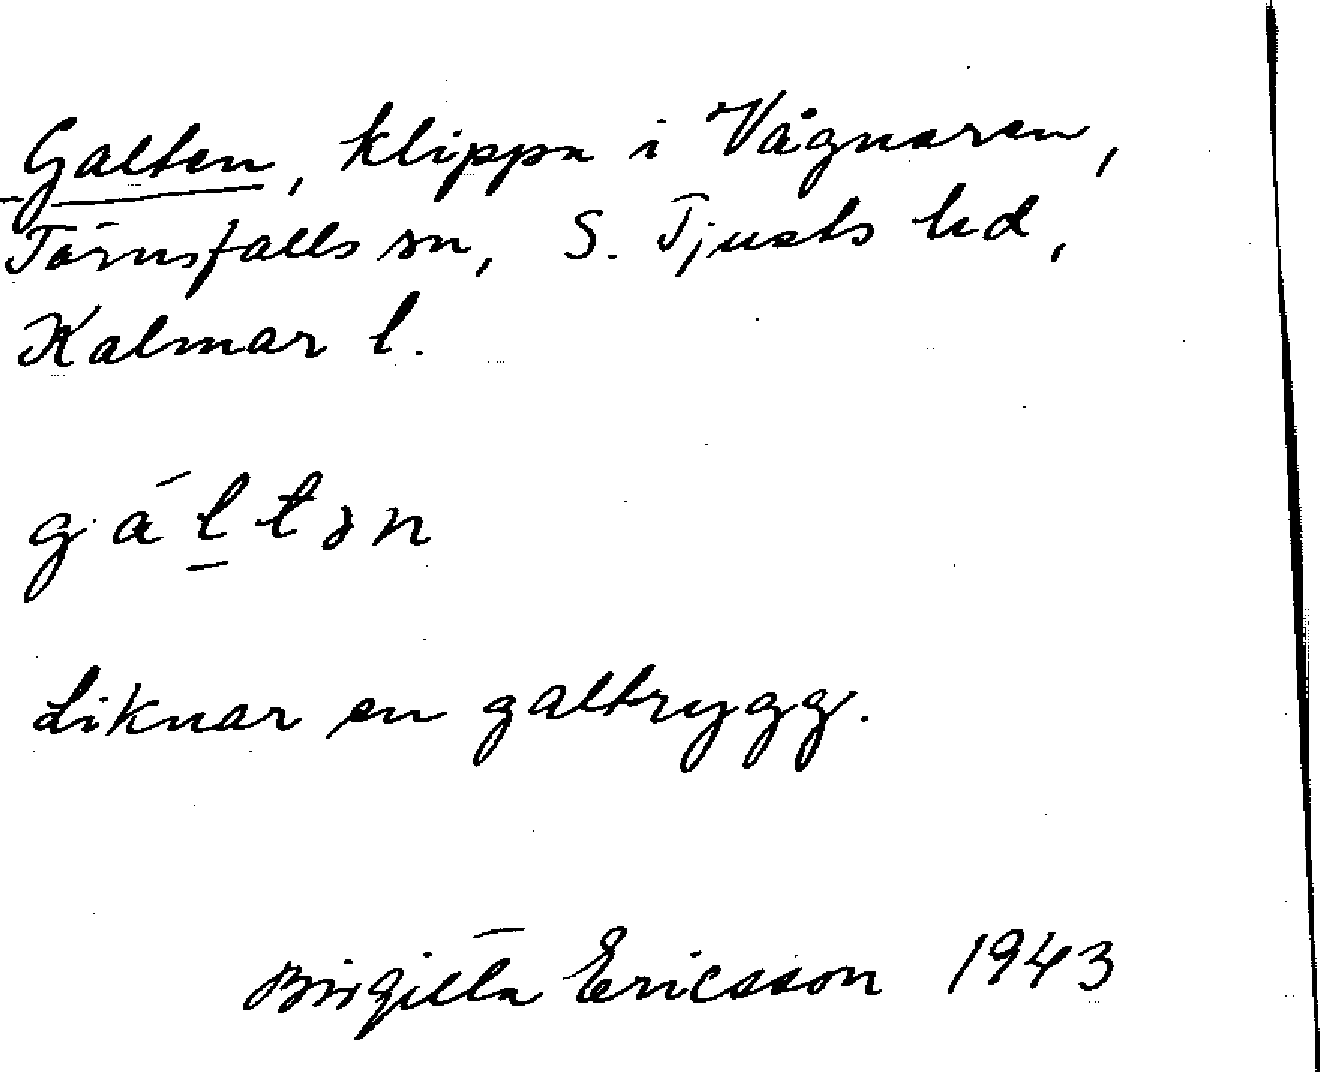 Galten, klippa i Vågnaren,
Törnsfalls sn, S. Tjusts hd,
Kalmar l.
gáḻtən
Liknar en galtrygg.
Birgitta Ericsson 1943